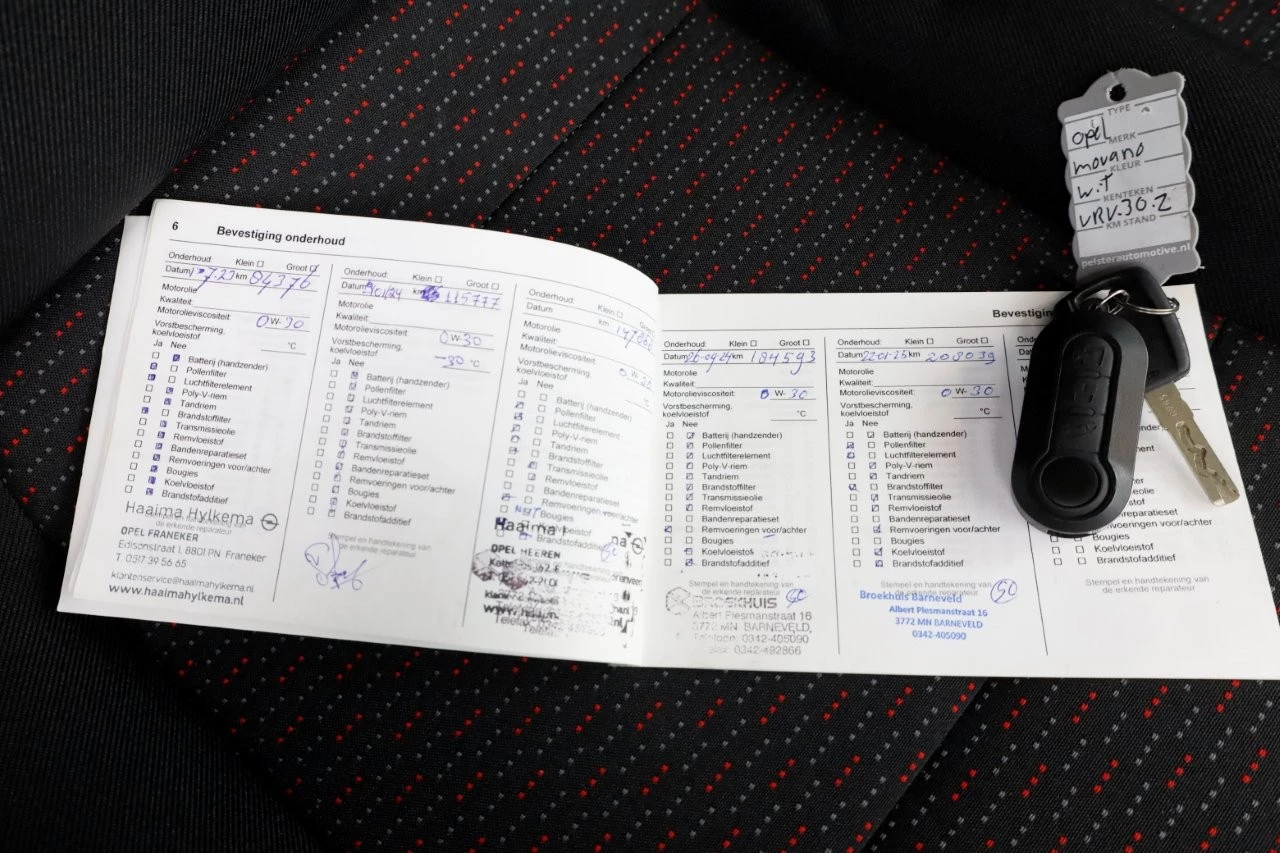 6 Bevestiging onderhoud
Onderhoud: Klein Groot
km 84376
Motorolie
Kwaliteit:
Motorolieviscositeit: 0 W- 30
Vorstbescherming,
koelvloeistof °C
Ja Nee
Batterij (handzender)
Pollenfilter
Luchtfilterelement
Poly-V-riem
Tandriem
Brandstoffilter
Transmissieolie
Remvloeistof
Bandenreparatieset
Remvoeringen voor/achter
Bougies
Koelvloeistof
Brandstofadditief
Haaima Hylkema
OPEL FRANEKER
Edisonstraat 1, 8801 PN Franeker
T. 0517 39 56 65
klantenservice@haaimahylkema.nl
www.haaimahylkema.nl
Onderhoud: Klein Groot
Datum km 115777
Motorolie
Kwaliteit:
Motorolieviscositeit: 0 W- 30
Vorstbescherming,
koelvloeistof -30 °C
Ja Nee
Batterij (handzender)
Pollenfilter
Luchtfilterelement
Poly-V-riem
Tandriem
Brandstoffilter
Transmissieolie
Remvloeistof
Bandenreparatieset
Remvoeringen voor/achter
Bougies
Koelvloeistof
Brandstofadditief
Stempel en handtekening van
de erkende reparateur
Onderhoud: Klein
Datum km
Motorolie
Kwaliteit:
Motorolieviscositeit:
Vorstbescherming,
koelvloeistof
Ja Nee
Batterij (handzender)
Pollenfilter
Luchtfilterelement
Poly-V-riem
Tandriem
Brandstoffilter
Transmissieolie
Remvloeistof
Bandenreparatieset
Remvoeringen voor/achter
Bougies
Brandstofadditief
OPEL HEEREN
Onderhoud: Klein Groot
Datum 26-09-24 km 184593
Motorolie
Kwaliteit:
Motorolieviscositeit: 0 W- 30
Vorstbescherming,
koelvloeistof °C
Ja Nee
Batterij (handzender)
Pollenfilter
Luchtfilterelement
Poly-V-riem
Tandriem
Brandstoffilter
Transmissieolie
Remvloeistof
Bandenreparatieset
Remvoeringen voor/achter
Bougies
Koelvloeistof
Brandstofadditief
Stempel en handtekening van
de erkende reparateur
BROEKHUIS
Albert Plesmanstraat 16
3772 MN BARNEVELD,
Telefoon: 0342-405090
Fax: 0342-492866
Onderhoud: Klein Groot
Datum 22-01-25 km 208039
Motorolie
Kwaliteit:
Motorolieviscositeit: 0 W- 30
Vorstbescherming,
koelvloeistof °C
Ja Nee
Batterij (handzender)
Pollenfilter
Luchtfilterelement
Poly-V-riem
Tandriem
Brandstoffilter
Transmissieolie
Remvloeistof
Bandenreparatieset
Remvoeringen voor/achter
Bougies
Koelvloeistof
Brandstofadditief
Stempel en handtekening van
de erkende reparateur
Broekhuis Barneveld
Albert Plesmanstraat 16
3772 MN BARNEVELD
0342-405090
Koelvloeistof
Brandstofadditief
Stempel en handtekening van
de erkende reparateur
TYPE
opel
MERK
movano
KLEUR
w.t
KENTEKEN
VRV.30.Z
KM STAND
pelsterautomotive.nl